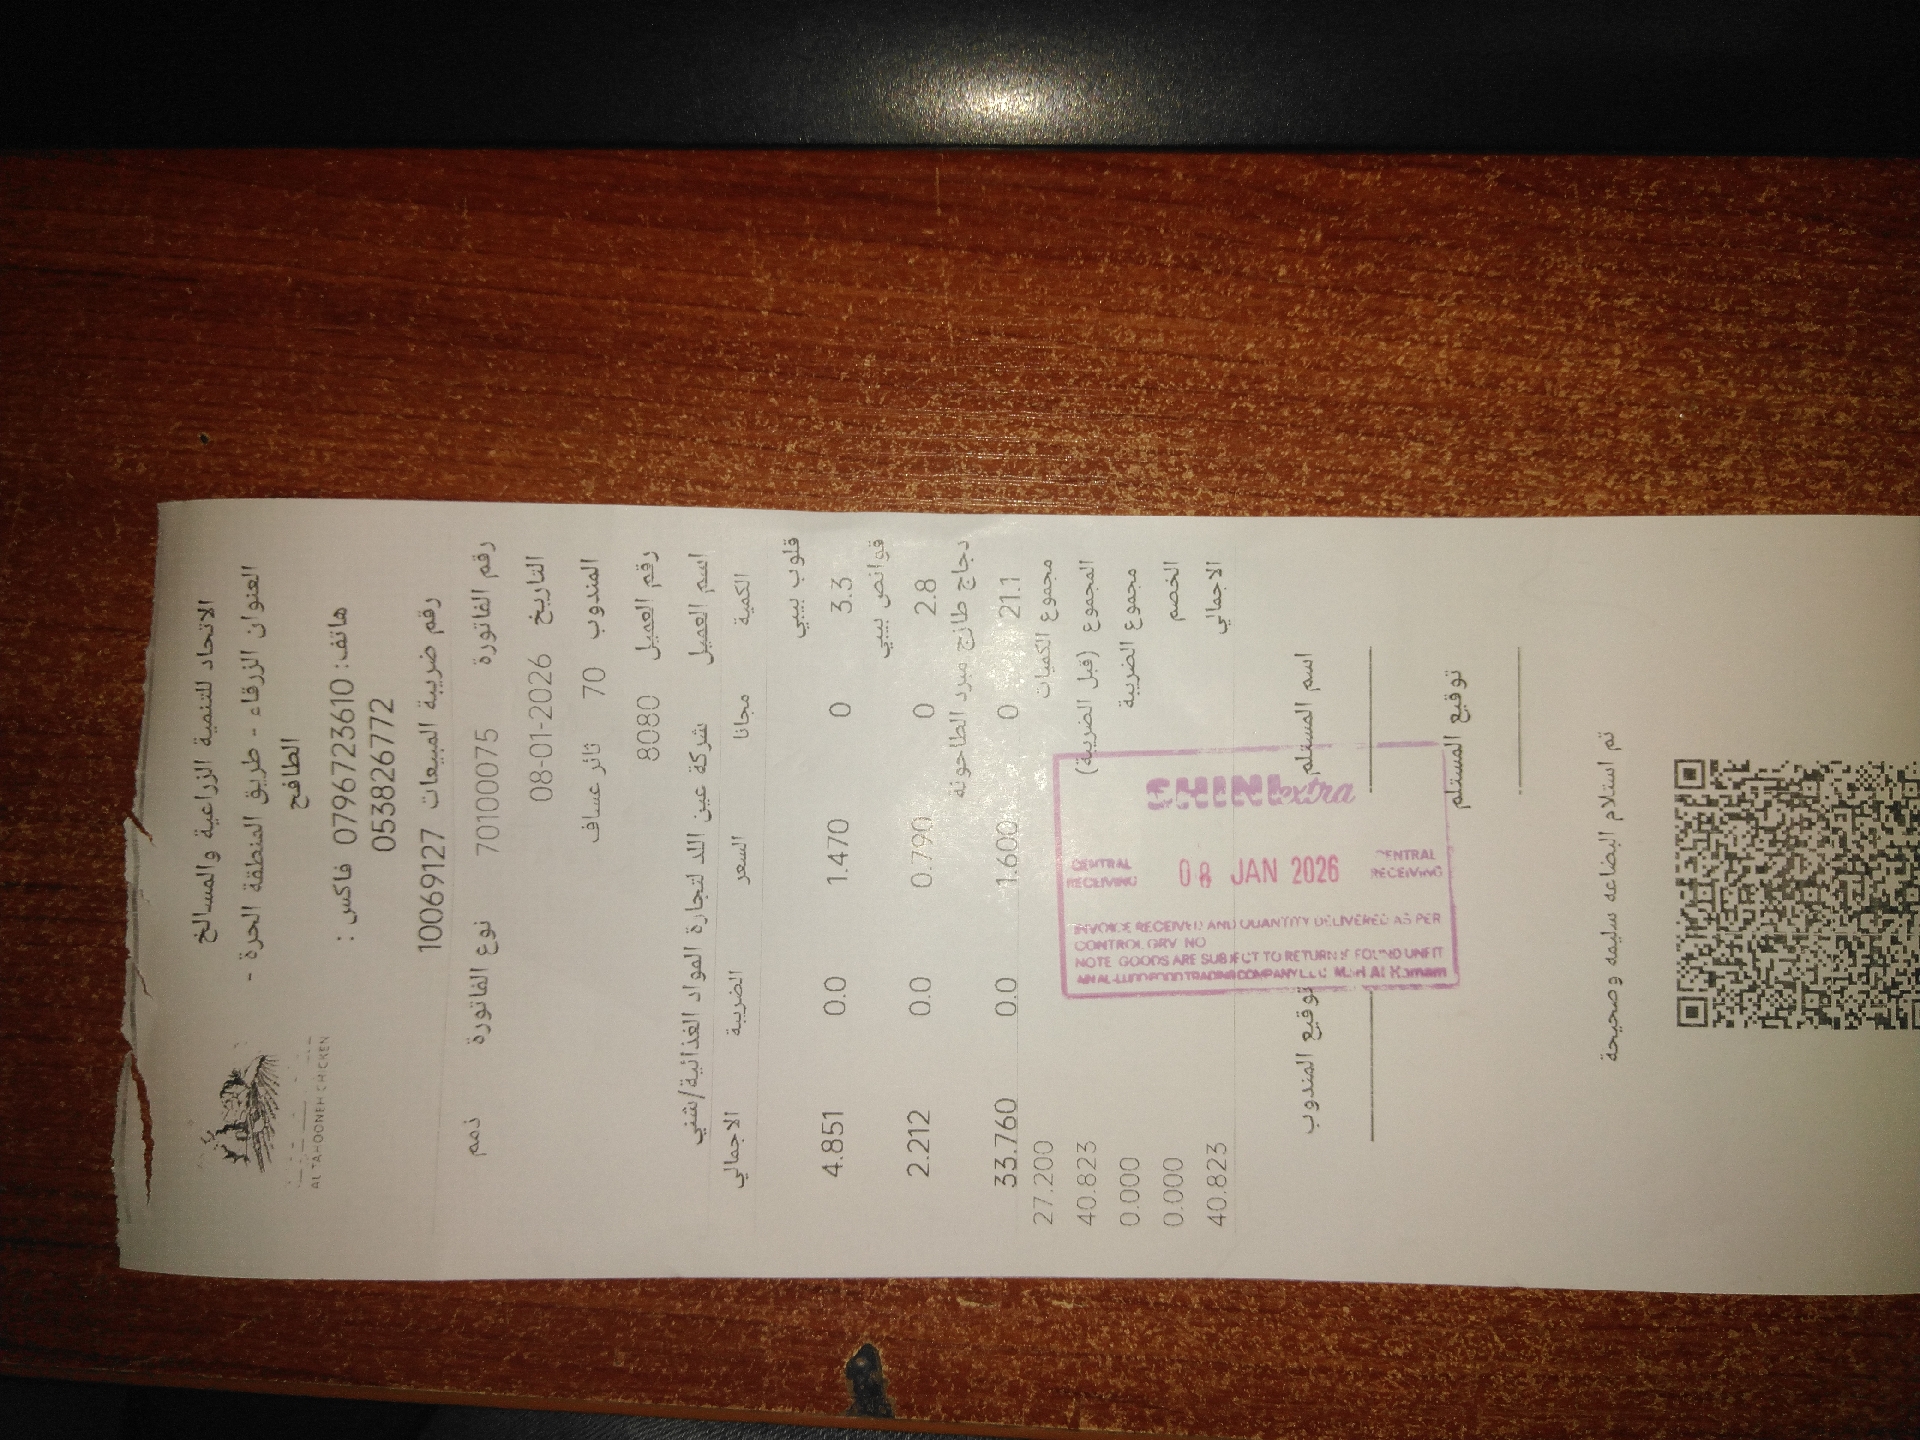 الاتحاد للتنمية الزراعية والمسالخ
العنوان الزرقاء - طريق المنطقة الحرة -
الطافح
هاتف: 0796723610 فاكس :
053826772
رقم ضريبة المبيعات 10069127
AL TAHOONEH CHICKEN
رقم الفاتورة 70100075 نوع الفاتورة ذمم
التاريخ 08-01-2026
المندوب 70 ثائر عساف
رقم العميل 8080
اسم العميل شركة عين اللد لتجارة المواد الغذائية/شني
الكمية مجانا السعر الضريبة الاجمالي
قلوب بيبي
3.3 0 1.470 0.0 4.851
قوانص بيبي
2.8 0 0.790 0.0 2.212
دجاج طازج مبرد الطاحونه
21.1 0 1.600 0.0 33.760
مجموع الكميات 27.200
المجموع (قبل الضريبة) 40.823
مجموع الضريبة 0.000
الخصم 0.000
الاجمالي 40.823
SHINI extra
CENTRAL RECEIVING 08 JAN 2026 CENTRAL RECEIVING
INVOICE RECEIVED AND QUANTITY DELIVERED AS PER
CONTROL GRV NO
NOTE GOODS ARE SUBJECT TO RETURN IF FOUND UNFIT
AIN AL-LUDD FOOD TRADING COMPANY L.L.C
اسم المستلم توقيع المندوب
توقيع المستلم
تم استلام البضاعه سليمه وصحيحة